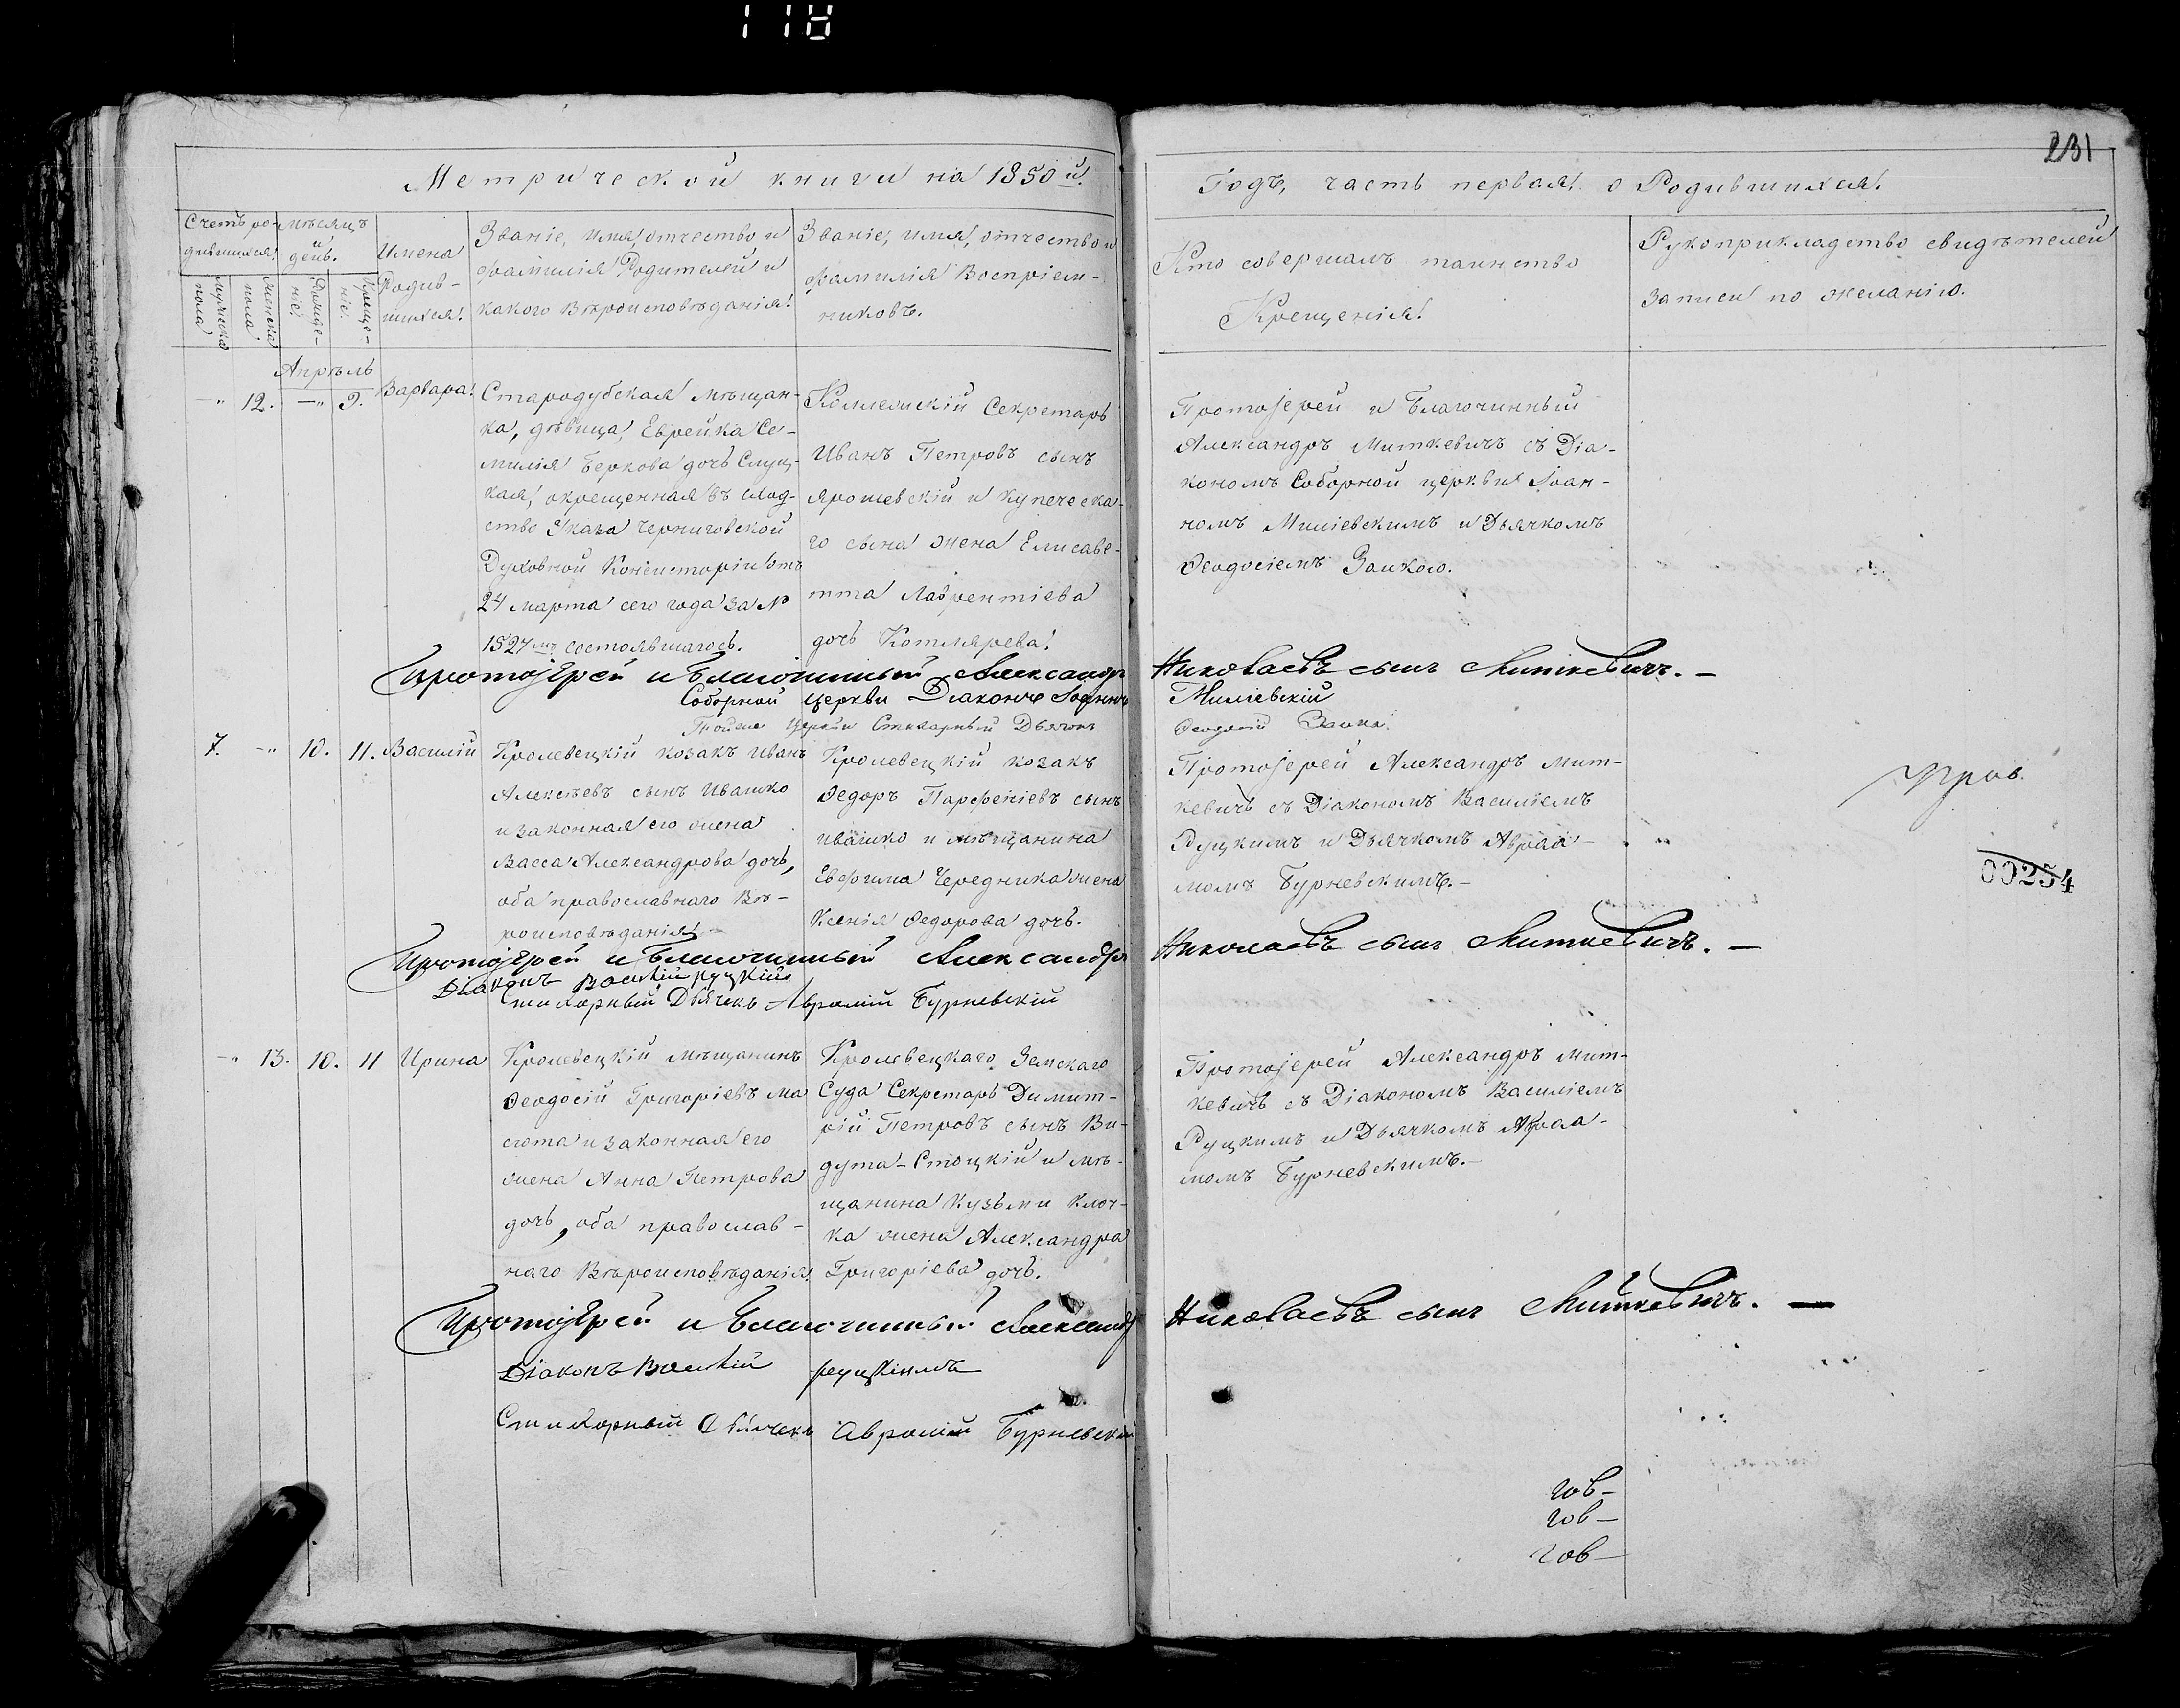 118
231
Метрической книги на 1850й.
Годъ, часть первая о Родившихся.
Счетъ ро-
дившихся
мѣсяцъ
и
день.
мужеска
пола
женска
пола
Рожде-
ніе.
Креще-
ніе.
Имена
Родив-
шихся.
Званіе, имя, отчество и
фамилія Родителей и
какого Вѣроисповѣданія.
Званіе, имя, отчество и
фамилія Воспріем-
никовъ.
Кто совершалъ таинство
Крещенія.
Рукоприкладство свидѣтелей
записи по желанію.
Апрѣль
-" 12. -" 9. Варвара.
Стародубская мѣщан-
ка, дѣвица, Еврейка Се-
милія Беркова дочь Слуц-
кая, окрещенная въ слѣд-
ство Указа Черниговской
Духовной Консисторіи отъ
24 марта сего года за №
1527мъ состоявшагось.
Коллежскій Секретарь
Иванъ Петровъ сынъ
Ярошевскій и купеческа-
го сына жена Елисаве-
тта Лаврентіева
дочь Котлярева.
Протоіерей и Благочинный
Александръ Миткевичъ съ Діа-
кономъ Соборной церкви Іоан-
номъ Миліевскимъ и Дьячкомъ
Феодосіемъ Заикою.
Протоіерей и Благочинный Александръ Николаевъ сынъ Миткевичъ. –
Соборной церкви Діаконъ Іоаннъ Миліевскій
Тойже Церкви Стихарный Дьячокъ Феодосій Заика
7. -" 10. 11. Василій
Кролевецкій козакъ Иванъ
Алексѣевъ сынъ Ивашко
и законная его жена
Васса Александрова дочь,
оба православнаго Вѣ-
роисповѣданія.
Кролевецкій козакъ
Федоръ Парфеніевъ сынъ
Ивашко и мѣщанина
Евфима Чередника жена
Ксенія Федорова дочь.
Протоіерей Александръ Мит-
кевичъ съ Діакономъ Василіемъ
Руцкимъ и Дьячкомъ Авраа-
момъ Бурневскимъ.–
00254
Протоіерей и Благочинный Александръ Николаевъ сынъ Миткевичъ. –
Діаконъ Василій Руцкій
Стихарный Дьячекъ Аврамій Бурневскій
-" 13. 10. 11 Ирина
Кролевецкій мѣщанинъ
Феодосій Григоріевъ Ма
сюта и законная его
жена Анна Петрова
дочь, оба православ-
наго Вѣроисповѣданія.
Кролевецкаго Земскаго
Суда Секретарь Димит-
рій Петровъ сынъ Ви-
дута-Стоцкій и мѣ-
щанина Кузьми Клоч-
ка жена Александра
Григоріева дочь.
Протоіерей Александръ Мит-
кевичъ съ Діакономъ Василіемъ
Руцкимъ и Дьячкомъ Авраа-
момъ Бурневскимъ.–
Протоіерей и Благочинный Александръ Николаевъ сынъ Миткевичъ. –
Діаконъ Василій Руцкій
Стихарный Дьячекъ Аврамій Бурневскій
гов–
гов–
гов–